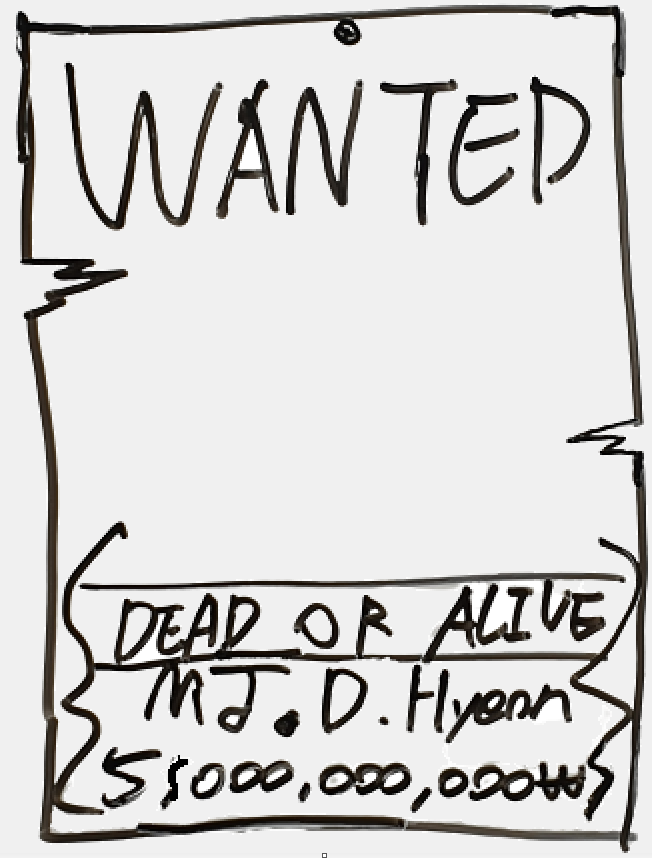 WANTED
DEAD OR ALIVE
MJ.D.Hyeon
5,000,000,000₩